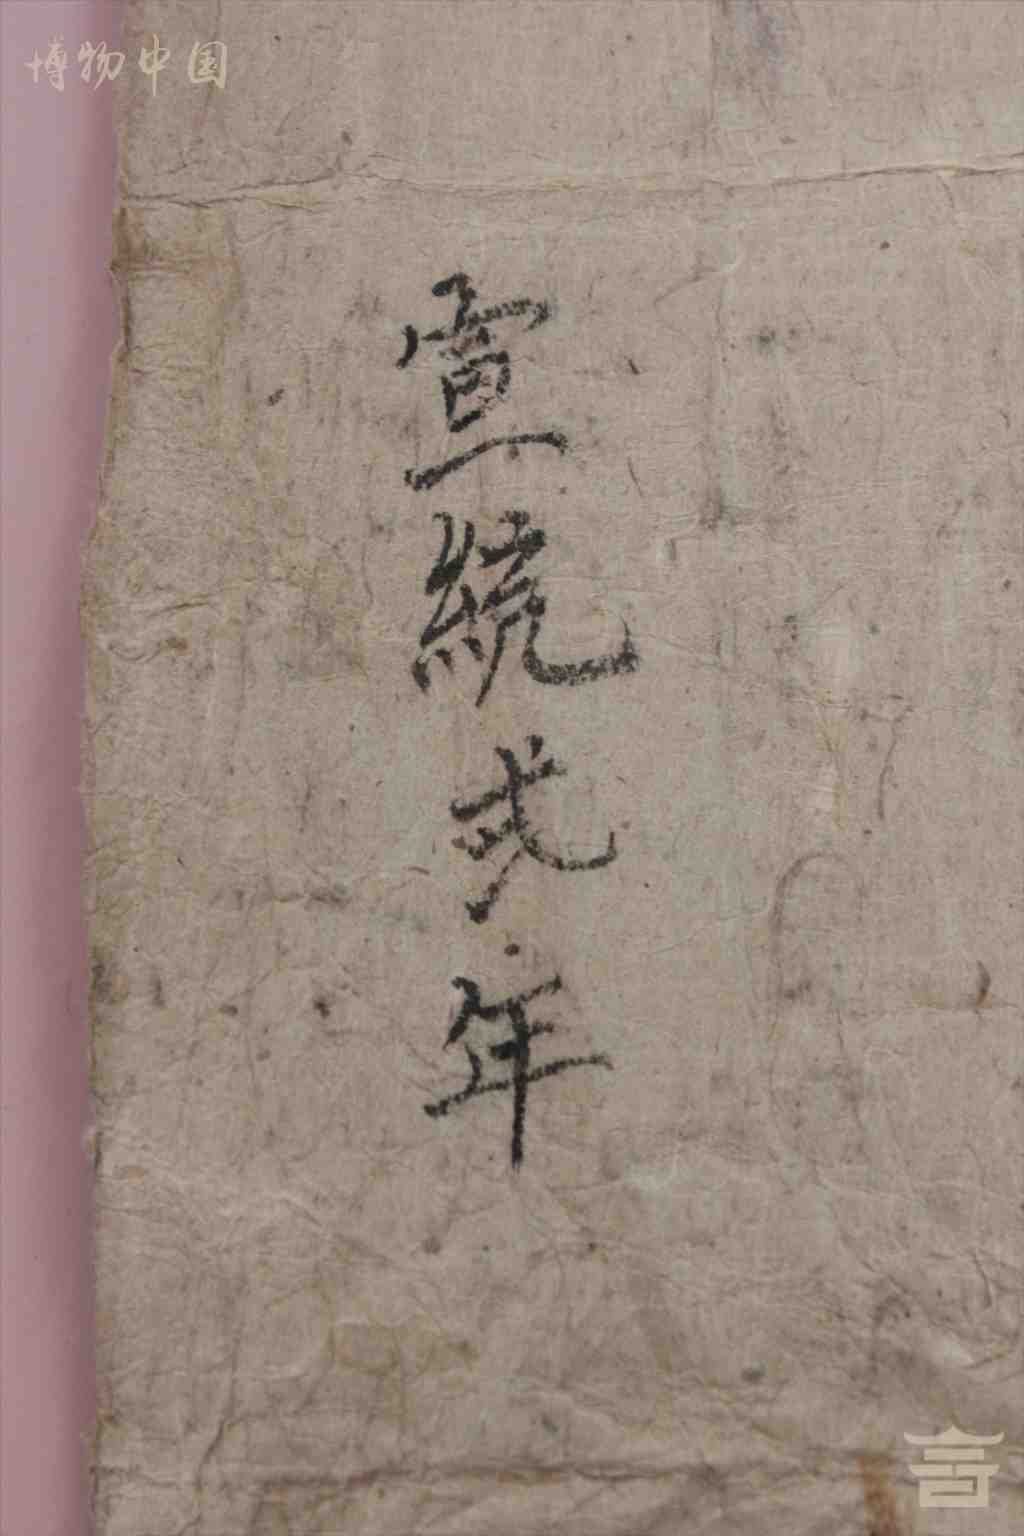 博物中国
宣統弍年